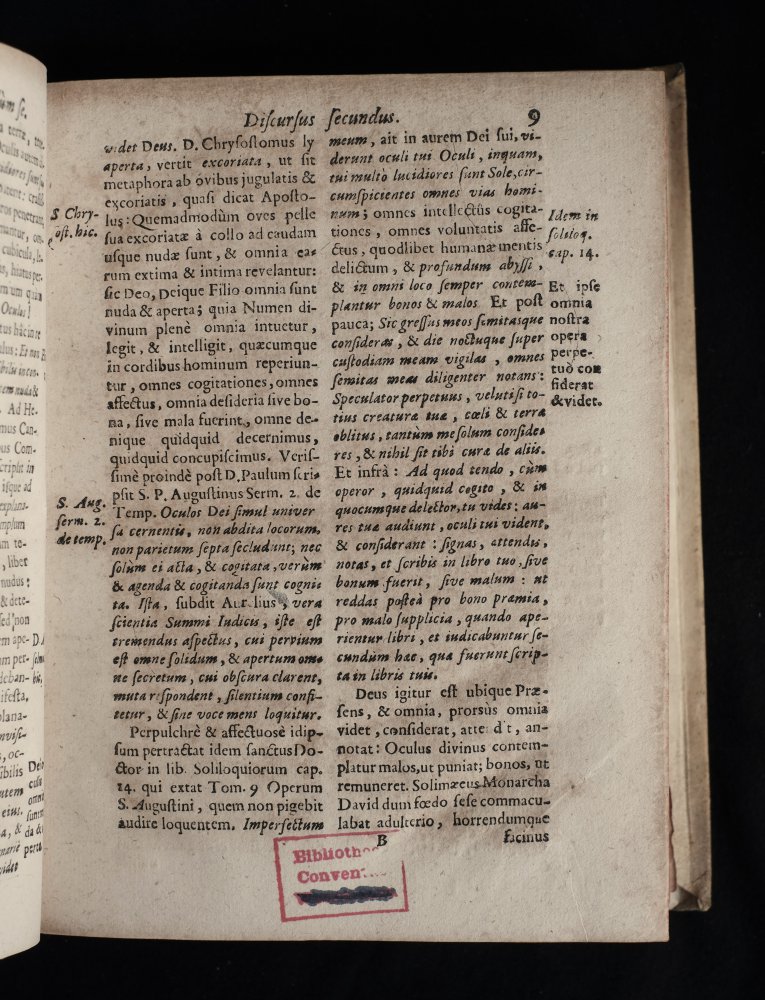 Discursus secundus. 9
videt Deus. D. Chrysostomus ly
aperta, vertit excoriata, ut sit
metaphora ab ovibus jugulatis &
excoriatis, quasi dicat Aposto-
lus: Quemadmodùm oves pelle
sua excoriatæ à collo ad caudam
usque nudæ sunt, & omnia ea-
rum extima & intima revelantur:
sic Deo, Deique Filio omnia sunt
nuda & aperta; quia Numen di-
vinum plenè omnia intuetur,
legit, & intelligit, quæcumque
in cordibus hominum reperiun-
tur, omnes cogitationes, omnes
affectus, omnia desideria sive bo-
na, sive mala fuerint, omne de-
nique quidquid decernimus,
quidquid concupiscimus. Veris-
simè proindè post D. Paulum scri-
psit S. P. Augustinus Serm. 2. de
Temp. Oculos Dei simul univer
sa cernentis, non abdita locorum,
non parietum septa secludunt; nec
solùm ei acta, & cogitata, verùm
& agenda & cogitanda sunt cogni-
ta. Ista, subdit Aurelius, vera
scientia Summi Iudicis, iste est
tremendus aspectus, cui pervium
est omne solidum, & apertum om-
ne secretum, cui obscura clarent,
muta respondent, silentium confi-
tetur, & sine voce mens loquitur.
Perpulchrè & affectuosè idip-
sum pertractat idem sanctus Do-
ctor in lib. Soliloquiorum cap.
14. qui extat Tom. 9 Operum
S. Augustini, quem non pigebit
audire loquentem. Imperfectum
S Chry-
ost. hic.
S. Aug.
serm. 2.
de temp.
meum, ait in aurem Dei sui, vi-
derunt oculi tui Oculi, inquam,
tui multò lucidiores sunt Sole, cir-
cumspicientes omnes vias homi-
num; omnes intellectûs cogita-
tiones, omnes voluntatis affe-
ctus, quodlibet humanæ mentis
delictum, & profundum abyssi,
& in omni loco semper contem-
plantur bonos & malos Et post
pauca; Sic gressus meos semitasque
consideras, & die noctuque super
custodiam meam vigilas, omnes
semitas meas diligenter notans:
Speculator perpetuus, veluti si to-
tius creaturæ tuæ, cœli & terræ
oblitus, tantùm me solum conside-
res, & nihil sit tibi curæ de aliis.
Et infrà: Ad quod tendo, cùm
operor, quidquid cogito, & in
quocumque delector, tu vides: au-
res tuæ audiunt, oculi tui vident,
& considerant: signas, attendis,
notas, et scribis in libro tuo, sive
bonum fuerit, sive malum: ut
reddas posteà pro bono præmia,
pro malo supplicia, quando ape-
rientur libri, et iudicabuntur se-
cundùm hæc, quæ fuerunt scrip-
ta in libris tuis.
Deus igitur est ubique Præ-
sens, & omnia, prorsùs omnia
videt, considerat, attendit, an-
notat: Oculus divinus contem-
platur malos, ut puniat; bonos, ut
remuneret. Solimæus Monarcha
David dum fœdo sese commacu-
labat adulterio, horrendumque
B facinus
Idem in
soliloq.
cap. 14.
Et ipse
omnia
nostra
opera
perpe-
tuò con
siderat
& videt.
Biblioth
Conven